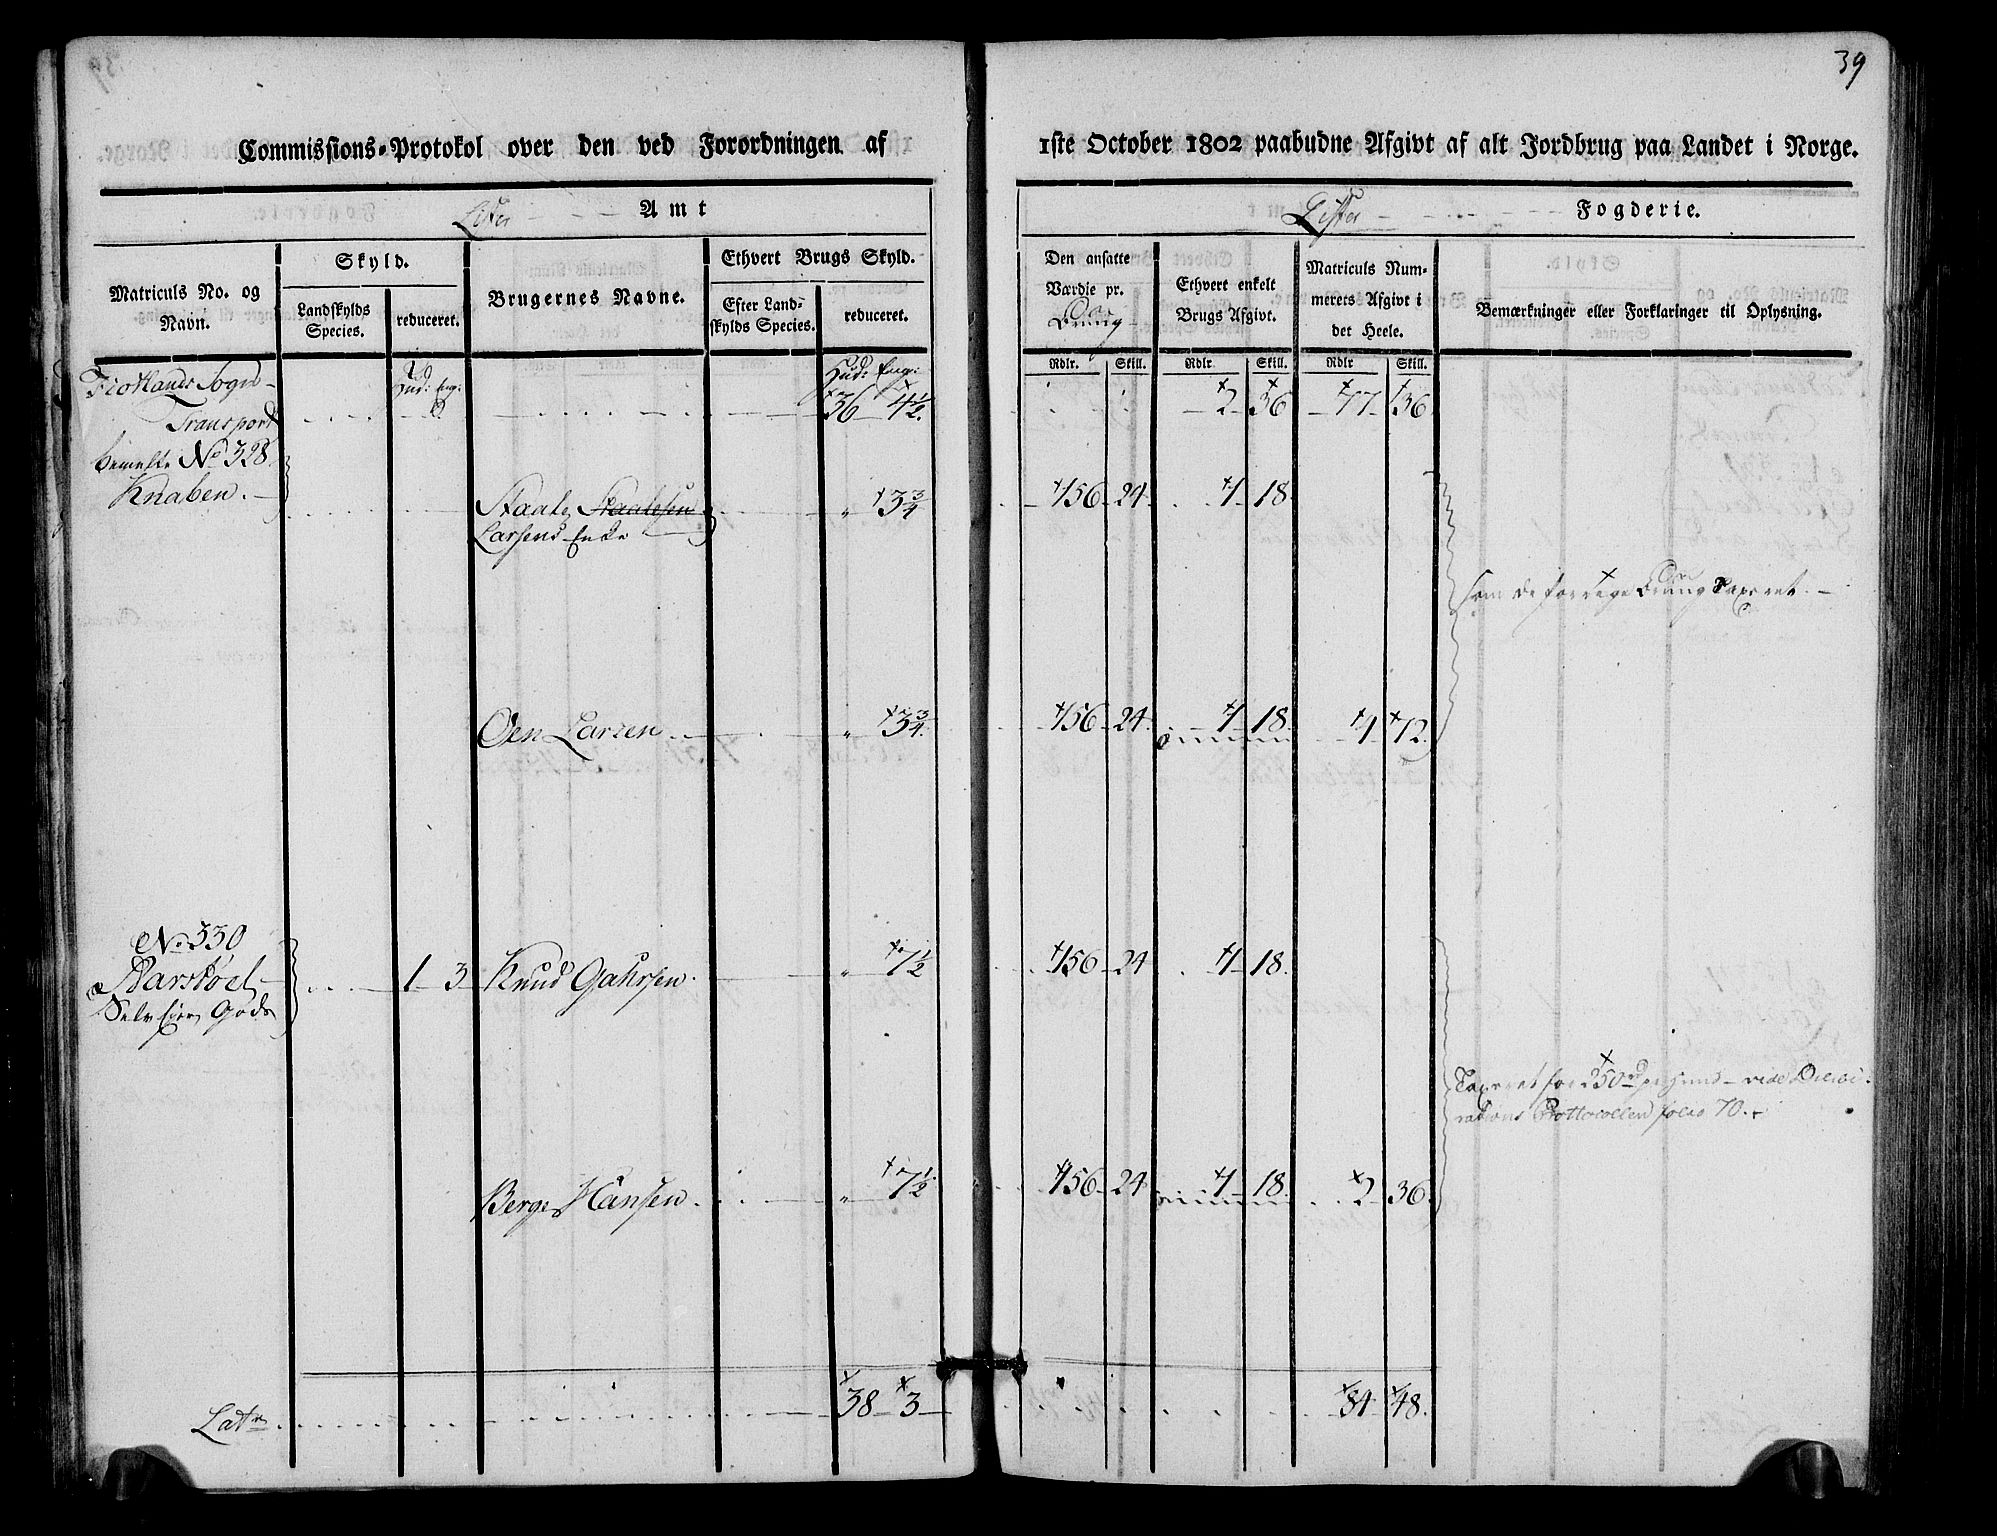 39
Commissions-Protokol over den ved Forordningen af 1ste October 1802 paabudne Afgivt af alt Jordbrug paa Landet i Norge.
Lister Amt
Lister Fogderie.
Matriculs No. og Navn.
Skyld.
Landskylds Species.
reduceret.
Brugernes Navne.
Ethvert Brugs Skyld.
Efter Landskylds Species.
reduceret.
Den ansatte Værdie pr. Brug
Ethvert enkelt Brugs Afgivt.
Matriculs Nummerets Afgivt i det Heele.
Bemærkninger eller Forklaringer til Oplysning.
Rdlr. Skill. Rdlr Skill. Rdlr Skill.
Fiotlands Sogn Hud: Eng: Hud: Eng:
Transport 36 4½ 2 36 77 36
No 328
Knaben.
Staale Staalesen " 3¾ 156 24 1 18
Larsens Enke
som de forrige Brug Taxeret.
Oen Larsen " 3¾ 156 24 1 18 4 72
No 330
Aarstøel 1 3 Knud Gahrsen " 7½ 156 24 1 18
Selv Eier Gods
Taxeret for 250 rd pr Huud vide
rations Prottocollen folio 70.
Berge Hansen " 7½ 156 24 1 18 2 36
Latr 38 3 84 48